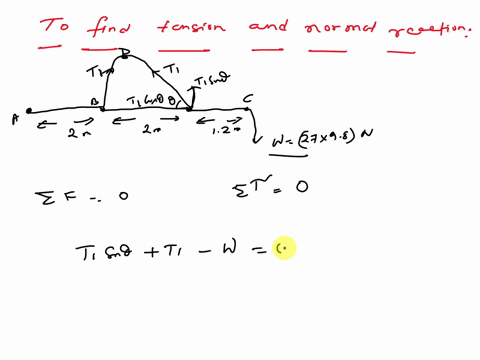 To find tension and normal reaction.
D
T1 T1 T1 sinθ
A B T1 cosθ θ C
2m 2m 1.2m
W = (27 x 9.8) N
ΣF = 0 Στ = 0
T1 sinθ + T1 - W = 0